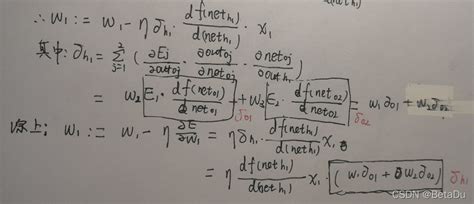 ∴ w₁ := w₁ - η ∂h₁ · df(net h₁)/d(net h₁) · x₁
其中: ∂h₁ = Σ_{j=1}^{2} ( ∂Ej/∂outoj · ∂outoj/∂netoj · ∂netoj/∂outh₁ )
= w₂ E₁ · df(neto1)/dneto1 + w₂ E₂ · df(neto2)/dneto2 = w₁ ∂o1 + w₂ ∂o2
∂o1 ∂o2
综上: w₁ := w₁ - η ∂E/∂w₁ = η ∂h₁ · df(neth₁)/d(neth₁) x₁
= η df(neth₁)/d(neth₁) x₁ · ( w₁ ∂o1 + w₂ ∂o2 ) ∂h₁
CSDN @BetaDu